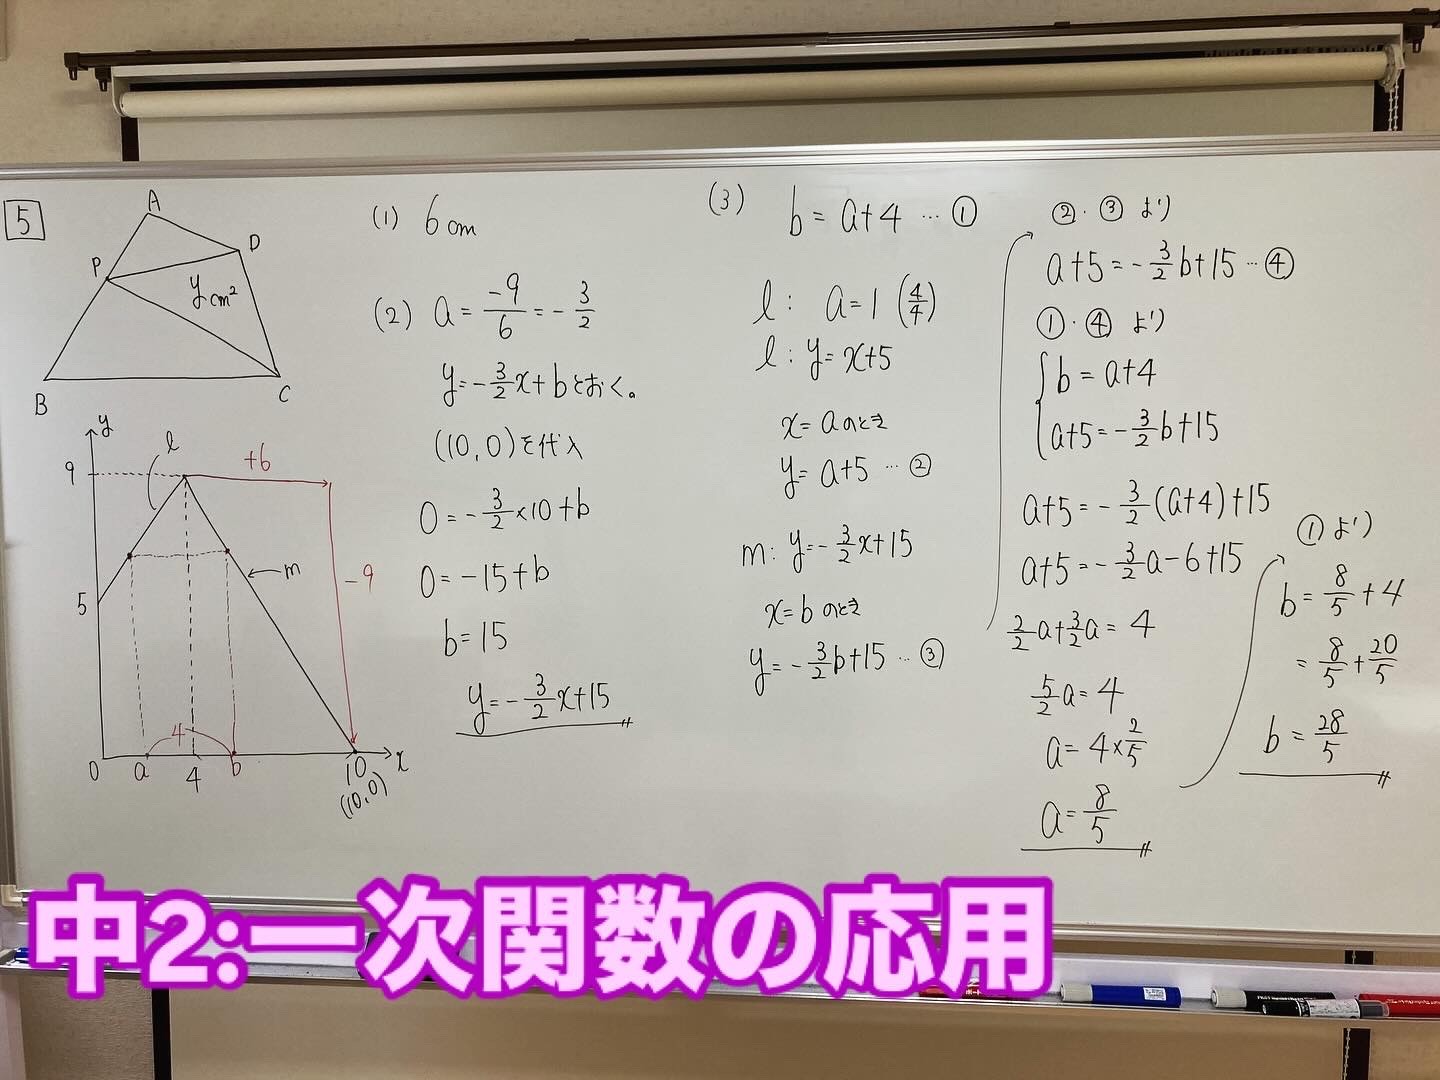 5
A
D
P
y cm²
B
C
y
l
9
+6
m
-9
5
4
0
a
4
b
10
x
(10,0)
(1) 6cm
(2) a = -9/6 = -3/2
y=-3/2x+bとおく。
(10,0)を代入
0=-3/2×10+b
0=-15+b
b=15
y=-3/2x+15
(3) b=a+4 … ①
l: a=1 (4/4)
l: y=x+5
x=aのとき
y=a+5 … ②
m: y=-3/2x+15
x=bのとき
y=-3/2b+15 … ③
②・③より
a+5=-3/2b+15 … ④
①・④より
b=a+4
a+5=-3/2b+15
a+5=-3/2(a+4)+15
a+5=-3/2a-6+15
2/2a+3/2a=4
5/2a=4
a=4×2/5
a=8/5
①より
b=8/5+4
=8/5+20/5
b=28/5
中2:一次関数の応用